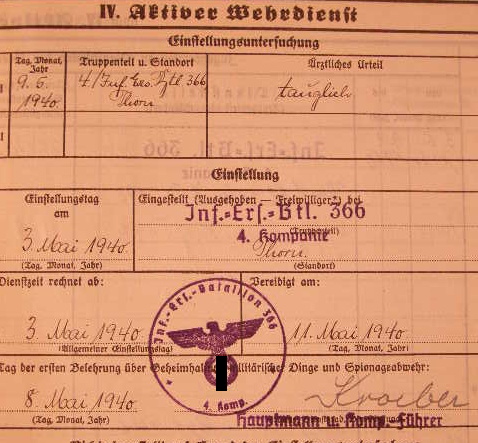 IV. Aktiver Wehrdienst
Einstellungsuntersuchung
Tag, Monat, Jahr
Truppenteil u. Standort
Ärztliches Urteil
9. 5. 1940.
4/Inf. Ers. Btl. 366
Thorn
tauglich
Einstellung
Einstellungstag
am
Eingestellt (Ausgehoben — Freiwilliger) bei
Inf.-Ers.-Btl. 366
4. Kompanie
(Truppenteil)
3. Mai 1940.
Thorn.
(Tag, Monat, Jahr)
(Standort)
Dienstzeit rechnet ab:
Vereidigt am:
Inf.-Ers.-Bataillon 366
4. Komp.
3. Mai 1940
11. Mai 1940
(Allgemeiner Einstellungstag)
(Tag, Monat, Jahr)
Tag der ersten Belehrung über Geheimhaltung militärischer Dinge und Spionageabwehr:
8. Mai 1940
Kroeber
(Tag, Monat, Jahr)
Hauptmann u. Komp.-Führer